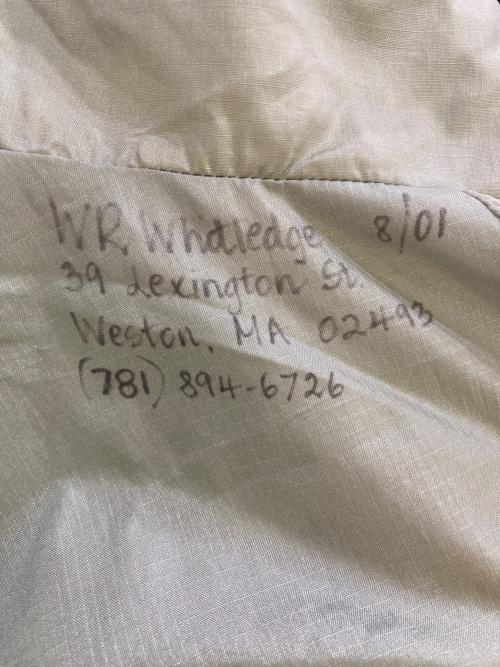 WR Whidledge 8/01
39 Lexington St.
Weston, MA 02493
(781) 894-6726